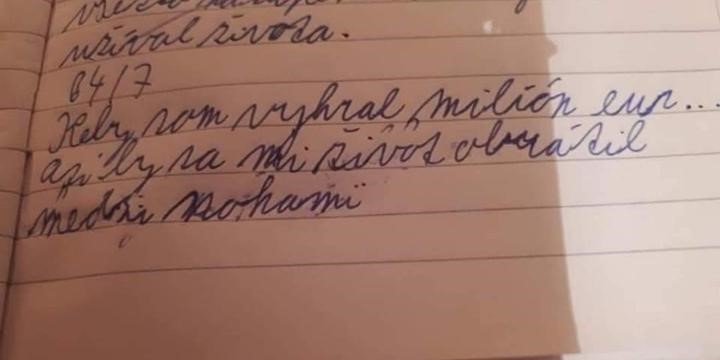 užíval života.
64/7
Keby som vyhral milión eur...
asi by sa mi život obrátil
medzi nohami